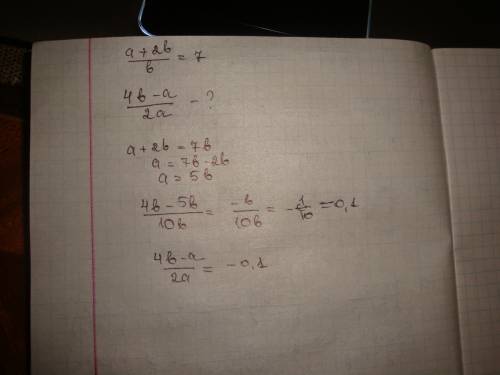 (a + 2b)/b = 7
(4b - a)/2a - ?
a + 2b = 7b
a = 7b - 2b
a = 5b
(4b - 5b)/10b = -b/10b = -1/10 = -0,1
(4b - a)/2a = -0,1